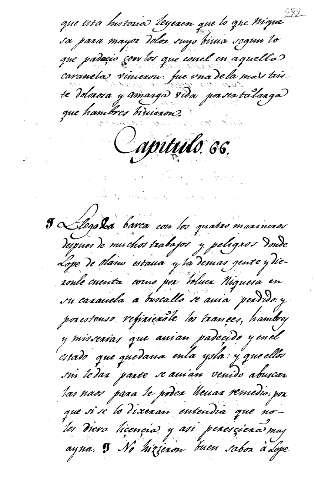 que esta historia leyeren que lo que Nique
sa para mayor dolor suyo biuia segun lo
que padecio con los que con el en aquella
carauela vinieron fue vna de la mas tris
te dolorosa y amarga vida
que hombres biuieron.
Capitulo. 66.
Llegada la barca con los quatro marineros
despues de muchos trabajos y peligros donde
Lope de Olano estaua y la demas gente y die
ronle cuenta como por boluer Niquesa en
su carauela a buscallo se auia perdido, y
por estenso refirieronle los trances, hambres
y miserias que auian padecido y en el
estado que quedaua en la ysla: y que ellos
sin le dar parte se auian venido a buscar
las naos para le poder lleuar remedio, por
que si se lo dixeran entendia que no
los diera licencia y asi peresciera muy
ayna. No hizieron buen sabor a Lope